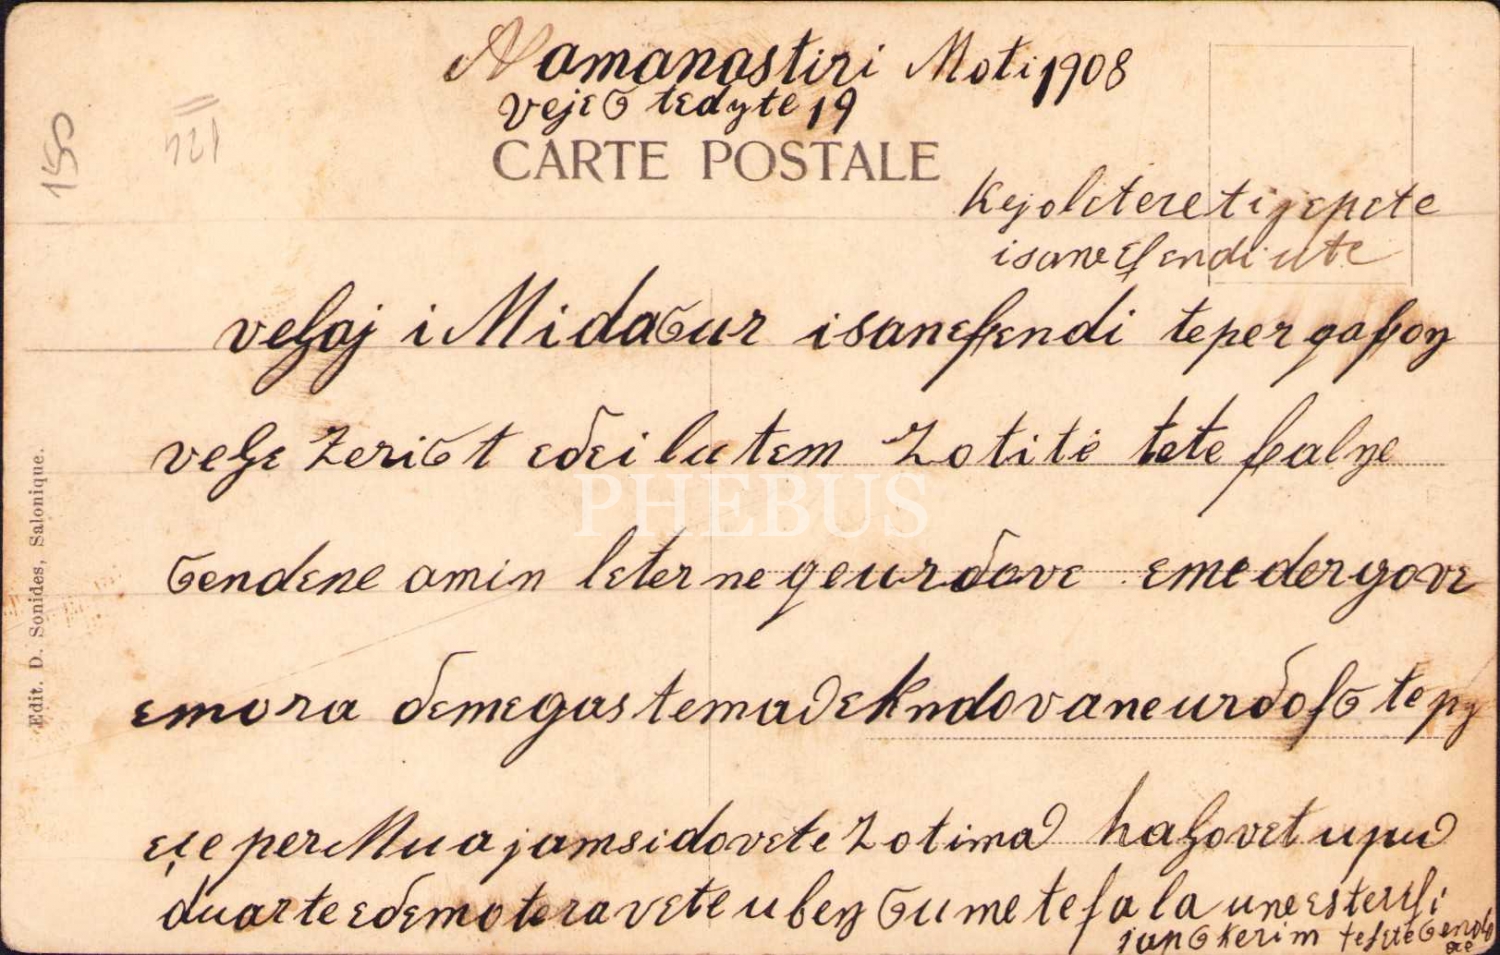 Namanastiri Moti 1908
vejeϬ tedyte 19
CARTE POSTALE
Kejoletere tijepete
isanefendiute
veʒaj i MidaϬur isanefendi teper qafoy
veʒe ZeriϬt eδei lutem Zotitė tete falye
Ϭendene amin leter ne qeurδove eme dergove
emora δemegas temaϑe kndovaneurδofϬ te py
eçe per Mua jamsidovete Zotimaϑ haʒovet upuϑ
duarte eδemoteravete u bey Ϭume te fa la une esterfi
junϬ Kerim
Edit. D. Sonides, Salonique.
150
521
PHEBUS